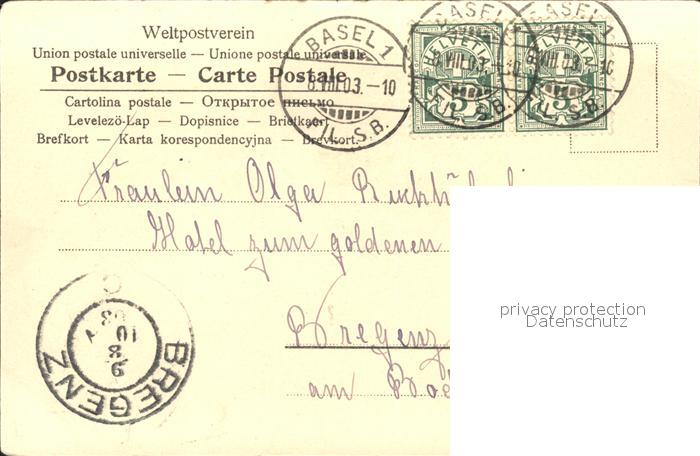 Weltpostverein
Union postale universelle — Unione postale universale
Postkarte — Carte Postale
Cartolina postale — Открытое письмо
Levelező-Lap — Dopisnice — Briefkaart
Brefkort — Karta korespondencyjna — Brevkort.
BASEL 1
8.VIII.03.—10
FIL. S.B.
HELVETIA
5
HELVETIA
5
Fräulein Olga
Hotel zum goldenen
Bregenz
am
BREGENZ
privacy protection
Datenschutz